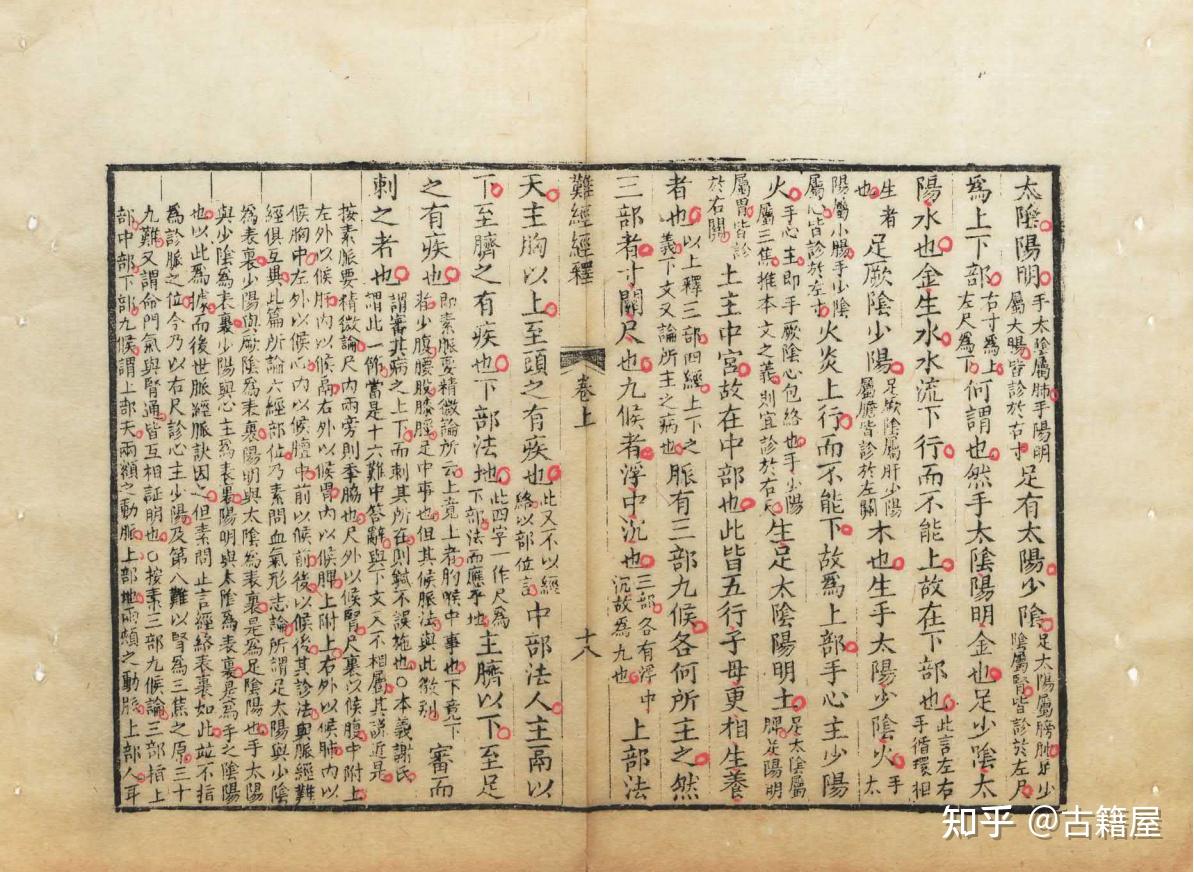 太陰陽明手太陰屬肺手陽明屬大腸皆診於右寸足有太陽少陰足太陽屬膀胱足少陰屬腎皆診於左尺
爲上下部右寸爲上左尺爲下何謂也然手太陰陽明金也足少陰太
陽水也金生水水流下行而不能上故在下部也此言左右手循環相
生者也足厥陰少陽足厥陰屬肝少陽屬膽皆診於左關木也生手太陽少陰火手太
陽屬小腸手少陰屬心皆診於左寸火炎上行而不能下故爲上部手心主少陽
火手心主即手厥陰心包絡也手少陽屬三焦推本文之義則宜診於右尺生足太陰陽明土足太陰屬脾足陽明
屬胃皆診於右關土主中宮故在中部也此皆五行子母更相生養
者也以上釋三部四經上下之義下文又論所主之病也脈有三部九候各何所主之然
三部者寸關尺也九候者浮中沉也三部各有浮中沉故爲九也上部法
難經經釋 卷上 十八
天主胸以上至頭之有疾也此又不以經絡以部位言中部法人主鬲以
下至臍之有疾也下部法地此四字一作尺爲下部法而應乎地主臍以下至足
之有疾也即素脈要精微論所云上竟上者胸喉中事也下竟下者少腹腰股膝脛足中事也但其候脈法與此微別審而
刺之者也謂審其病之上下而刺其所在則鍼不誤施也○本義謝氏謂此一節當是十六難中答辭與下文又不相屬其說近是
按素脈要精微論尺內兩旁則季脇也尺外以候腎尺裏以候腹中附上
左外以候肝內以候鬲右外以候胃內以候脾上附上右外以候肺內以
候胸中左外以候心內以候膻中前以候前後以候後其診法與脈經難
經俱互異此篇所論六經部位乃素問血氣形志論所謂足太陽與少陰
爲表裏少陽與厥陰爲表裏陽明與太陰爲表裏是爲足陰陽也手太陽
與少陰爲表裏少陽與心主爲表裏陽明與太陰爲表裏是爲手之陰陽
也以此爲據而後世脈經脈訣因之但素問止言經絡表裏如此並不指
爲診脈之位今乃以右尺診心主少陽及第八難以腎爲三焦之原三十
九難又謂命門氣與腎通皆互相証明也○按素三部九候論三部指上
部中部下部九候謂上部天兩額之動脈上部地兩頰之動脈上部人耳
知乎 @古籍屋